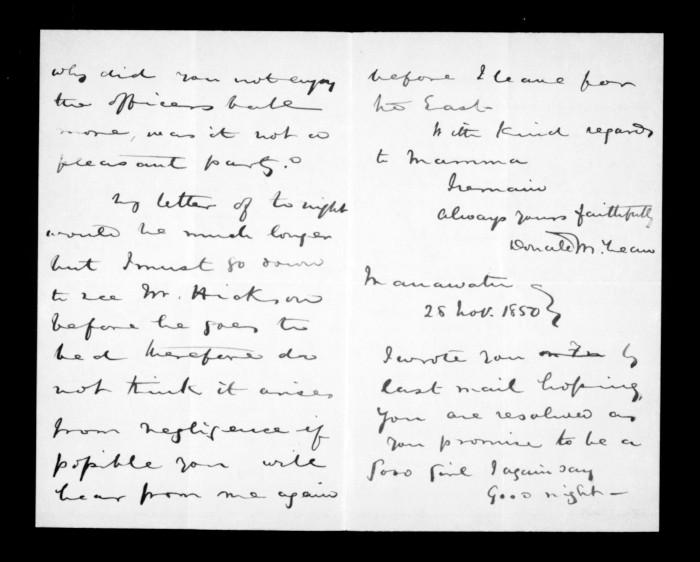 why did you not enjoy
the officers ball
more, was it not a
pleasant party?
My letter of to night
would be much longer
but I must go down
to see Mr. Hickson
before he goes to
bed therefore do
not think it arises
from negligence if
possible you will
hear from me again
before I leave for
the East
With kind regards
to Mamma
I remain
always yours faithfully
Donald McLean
Manawatu
28 Nov. 1850
I wrote you by
last mail hoping
you are resolved as
you promise to be a
good girl I again say
Good night —